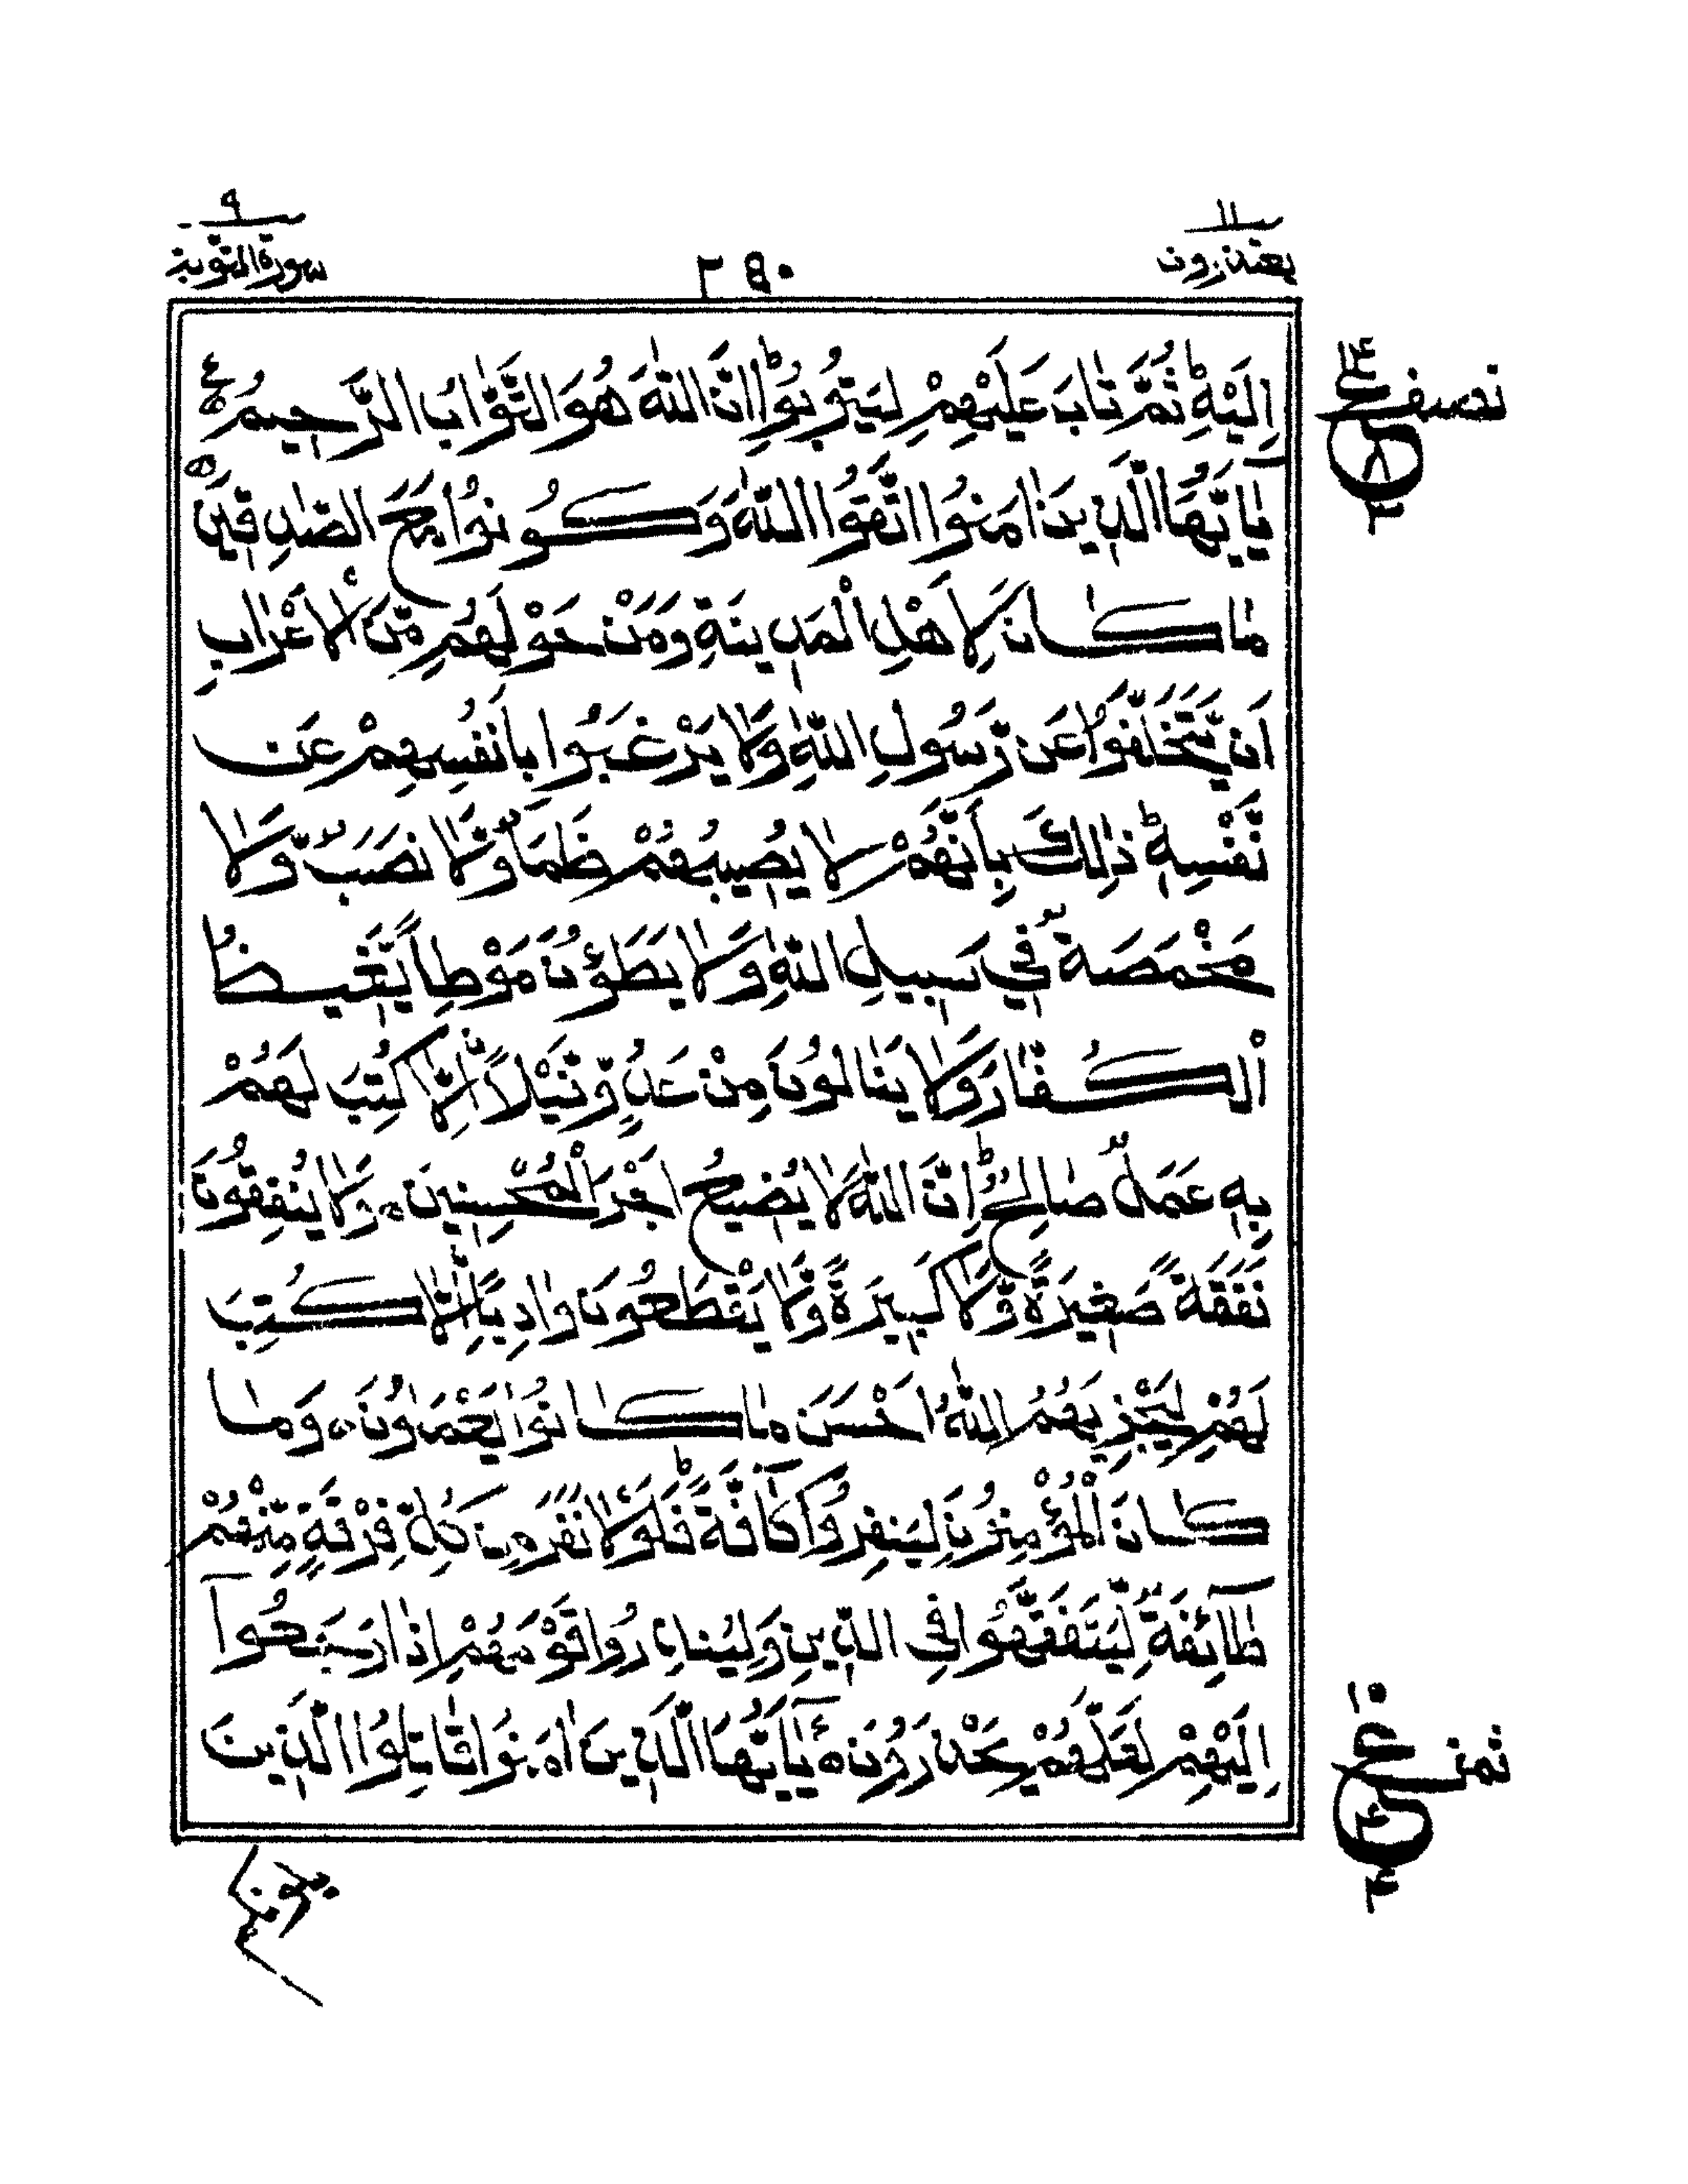 ١١
يعتذرون
٢٩٠
٩
سورة التوبة
اِلَيْهِ ؕ ثُمَّ تَابَ عَلَيْهِمْ لِيَتُوْبُوْا ؕ اِنَّ اللّٰهَ هُوَ التَّوَّابُ الرَّحِيْمُ
يٰۤاَيُّهَا الَّذِيْنَ اٰمَنُوا اتَّقُوا اللّٰهَ وَكُوْنُوْا مَعَ الصّٰدِقِيْنَ
مَا كَانَ لِاَهْلِ الْمَدِيْنَةِ وَمَنْ حَوْلَهُمْ مِّنَ الْاَعْرَابِ
اَنْ يَّتَخَلَّفُوْا عَنْ رَّسُوْلِ اللّٰهِ وَلَا يَرْغَبُوْا بِاَنْفُسِهِمْ عَنْ
نَّفْسِهٖ ؕ ذٰلِكَ بِاَنَّهُمْ لَا يُصِيْبُهُمْ ظَمَاٌ وَّلَا نَصَبٌ وَّلَا
مَخْمَصَةٌ فِيْ سَبِيْلِ اللّٰهِ وَلَا يَطَـُٔوْنَ مَوْطِئًا يَّغِيْظُ
الْكُفَّارَ وَلَا يَنَالُوْنَ مِنْ عَدُوٍّ نَّيْلًا اِلَّا كُتِبَ لَهُمْ
بِهٖ عَمَلٌ صَالِحٌ ؕ اِنَّ اللّٰهَ لَا يُضِيْعُ اَجْرَ الْمُحْسِنِيْنَ ۝ وَلَا يُنْفِقُوْنَ
نَفَقَةً صَغِيْرَةً وَّلَا كَبِيْرَةً وَّلَا يَقْطَعُوْنَ وَادِيًا اِلَّا كُتِبَ
لَهُمْ لِيَجْزِيَهُمُ اللّٰهُ اَحْسَنَ مَا كَانُوْا يَعْمَلُوْنَ ۝ وَمَا
كَانَ الْمُؤْمِنُوْنَ لِيَنْفِرُوْا كَآفَّةً ؕ فَلَوْلَا نَفَرَ مِنْ كُلِّ فِرْقَةٍ مِّنْهُمْ
طَآئِفَةٌ لِّيَتَفَقَّهُوْا فِي الدِّيْنِ وَلِيُنْذِرُوْا قَوْمَهُمْ اِذَا رَجَعُوْۤا
اِلَيْهِمْ لَعَلَّهُمْ يَحْذَرُوْنَ ۝ يٰۤاَيُّهَا الَّذِيْنَ اٰمَنُوْا قَاتِلُوا الَّذِيْنَ
نصف
ع
٣
ثمن
ع
٤
يلونكم